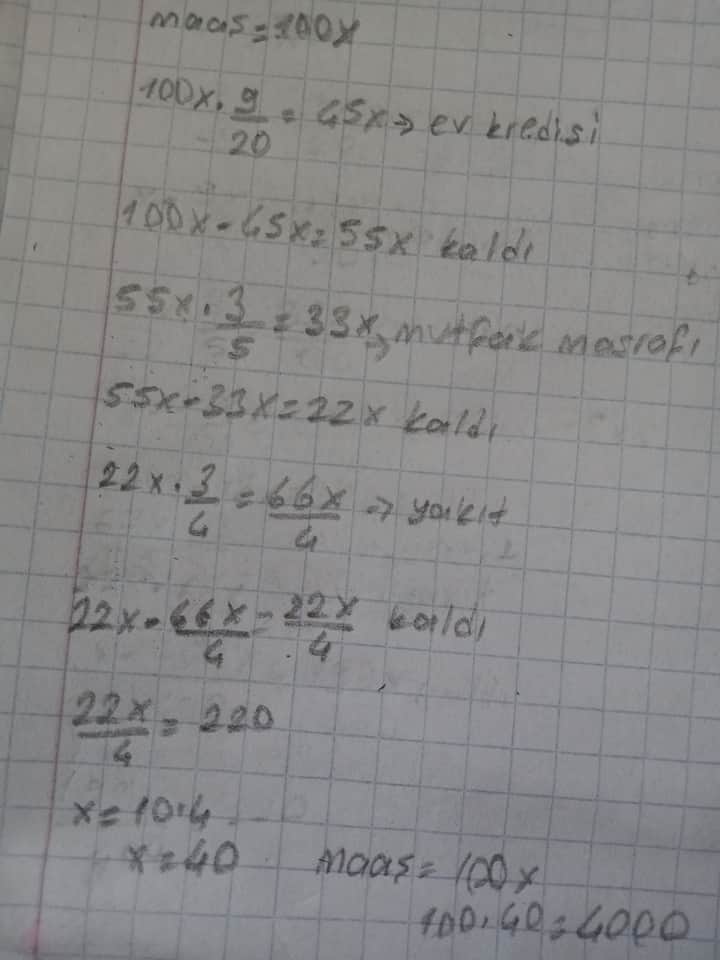 maaş = 100x
100x · 9/20 = 45x → ev kredisi
100x - 45x = 55x kaldı
55x · 3/5 = 33x → mutfak masrafı
55x - 33x = 22x kaldı
22x · 3/4 = 66x/4 → yakıt
22x - 66x/4 = 22x/4 kaldı
22x/4 = 220
x = 10·4
x = 40 maaş = 100x
100 · 40 = 4000